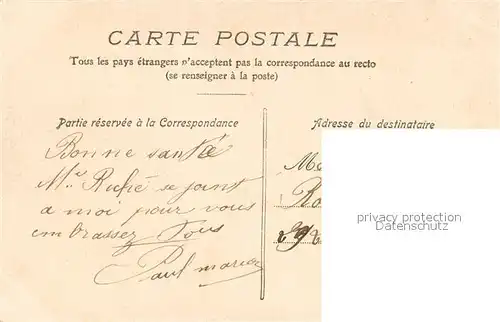 CARTE POSTALE
Tous les pays étrangers n'acceptent pas la correspondance au recto
(se renseigner à la poste)
Partie réservée à la Correspondance
Adresse du destinataire
Bonne santé
se joint
a moi pour vous
embrasser Tous
Paul
privacy protection
Datenschutz